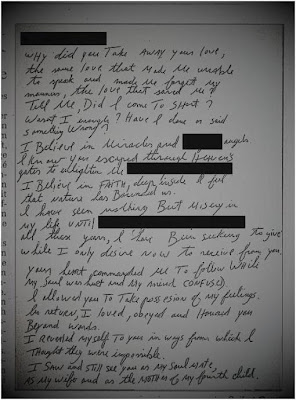 Why did you Take away your love,
the same love that Made Me unable
to speak and made Me forget my
manners, the love that saved Me?
Tell Me, Did I Come To Short?
Wasnt I enough? Have I done or said
something Wrong?
I Believe in Miracles and angels
I know you escaped through Heavens
gates to enlighten Me
I Believe in FAITH, deep inside I feel
that nature has us.
I have seen nothing But Misery in
my life UNTIL
all these years, I have Been seeking To give
while I only desire NOW to receive from you.
Your heart commanded Me To follow While
my Soul was hurt and My mind CONFUSED.
I allowed you To Take possesion of My feelings.
In return, I loved, obeyed and Honored you
Beyond words.
I revealed Myself To you in ways from which I
Thought they were impossible.
I Saw and still see you as My Soul Mate,
as My Wife and as the MOTHER of My fourth child.